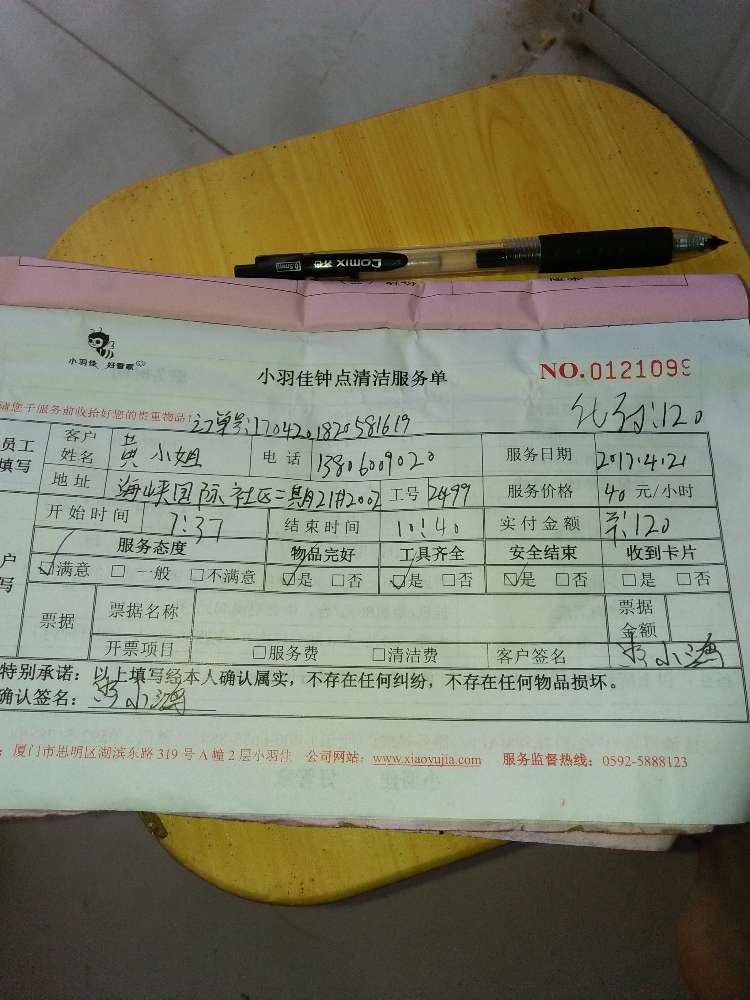 COMIX 齐心 0.5mm
小羽佳 好管家
小羽佳钟点清洁服务单
NO. 0121099
请您于服务前收拾好您的贵重物品!
订单号:1704201820581619
120
员工填写 客户姓名 黄小姐 电话 13806009020 服务日期 2017.4.21
地址 海峡国际社区二期21#2002 工号 2499 服务价格 40 元/小时
开始时间 7:37 结束时间 10:40 实付金额 120
服务态度 物品完好 工具齐全 安全结束 收到卡片
☑满意 □一般 □不满意 ☑是 □否 ☑是 □否 ☑是 □否 □是 □否
户写
票据 票据名称 票据金额
开票项目 □服务费 □清洁费 客户签名
特别承诺：以上填写经本人确认属实，不存在任何纠纷，不存在任何物品损坏。
确认签名：
：厦门市思明区湖滨东路 319 号 A 幢 2 层小羽佳 公司网站：www.xiaoyujia.com 服务监督热线：0592-5888123